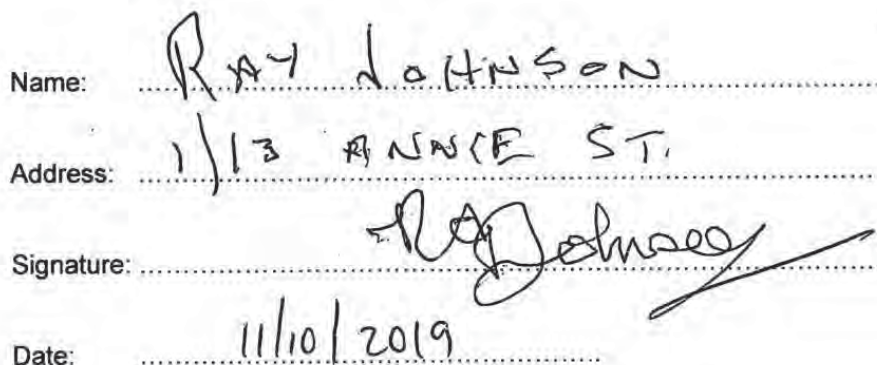 Name: RAY JOHNSON
Address: 1/13 ANNIE ST.
Signature: RA Johnson
Date: 11/10/2019